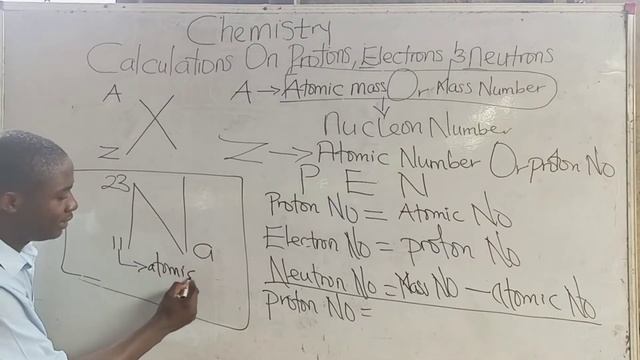 Chemistry
Calculations On Protons, Electrons, & neutrons
A X Z
A → Atomic mass Or Mass Number
nucleon Number
Z → Atomic Number Or proton No
P E N
23 Na 11
→ atomic
Proton No = Atomic No
Electron No = proton No
Neutron No = Mass No - atomic No
Proton No =